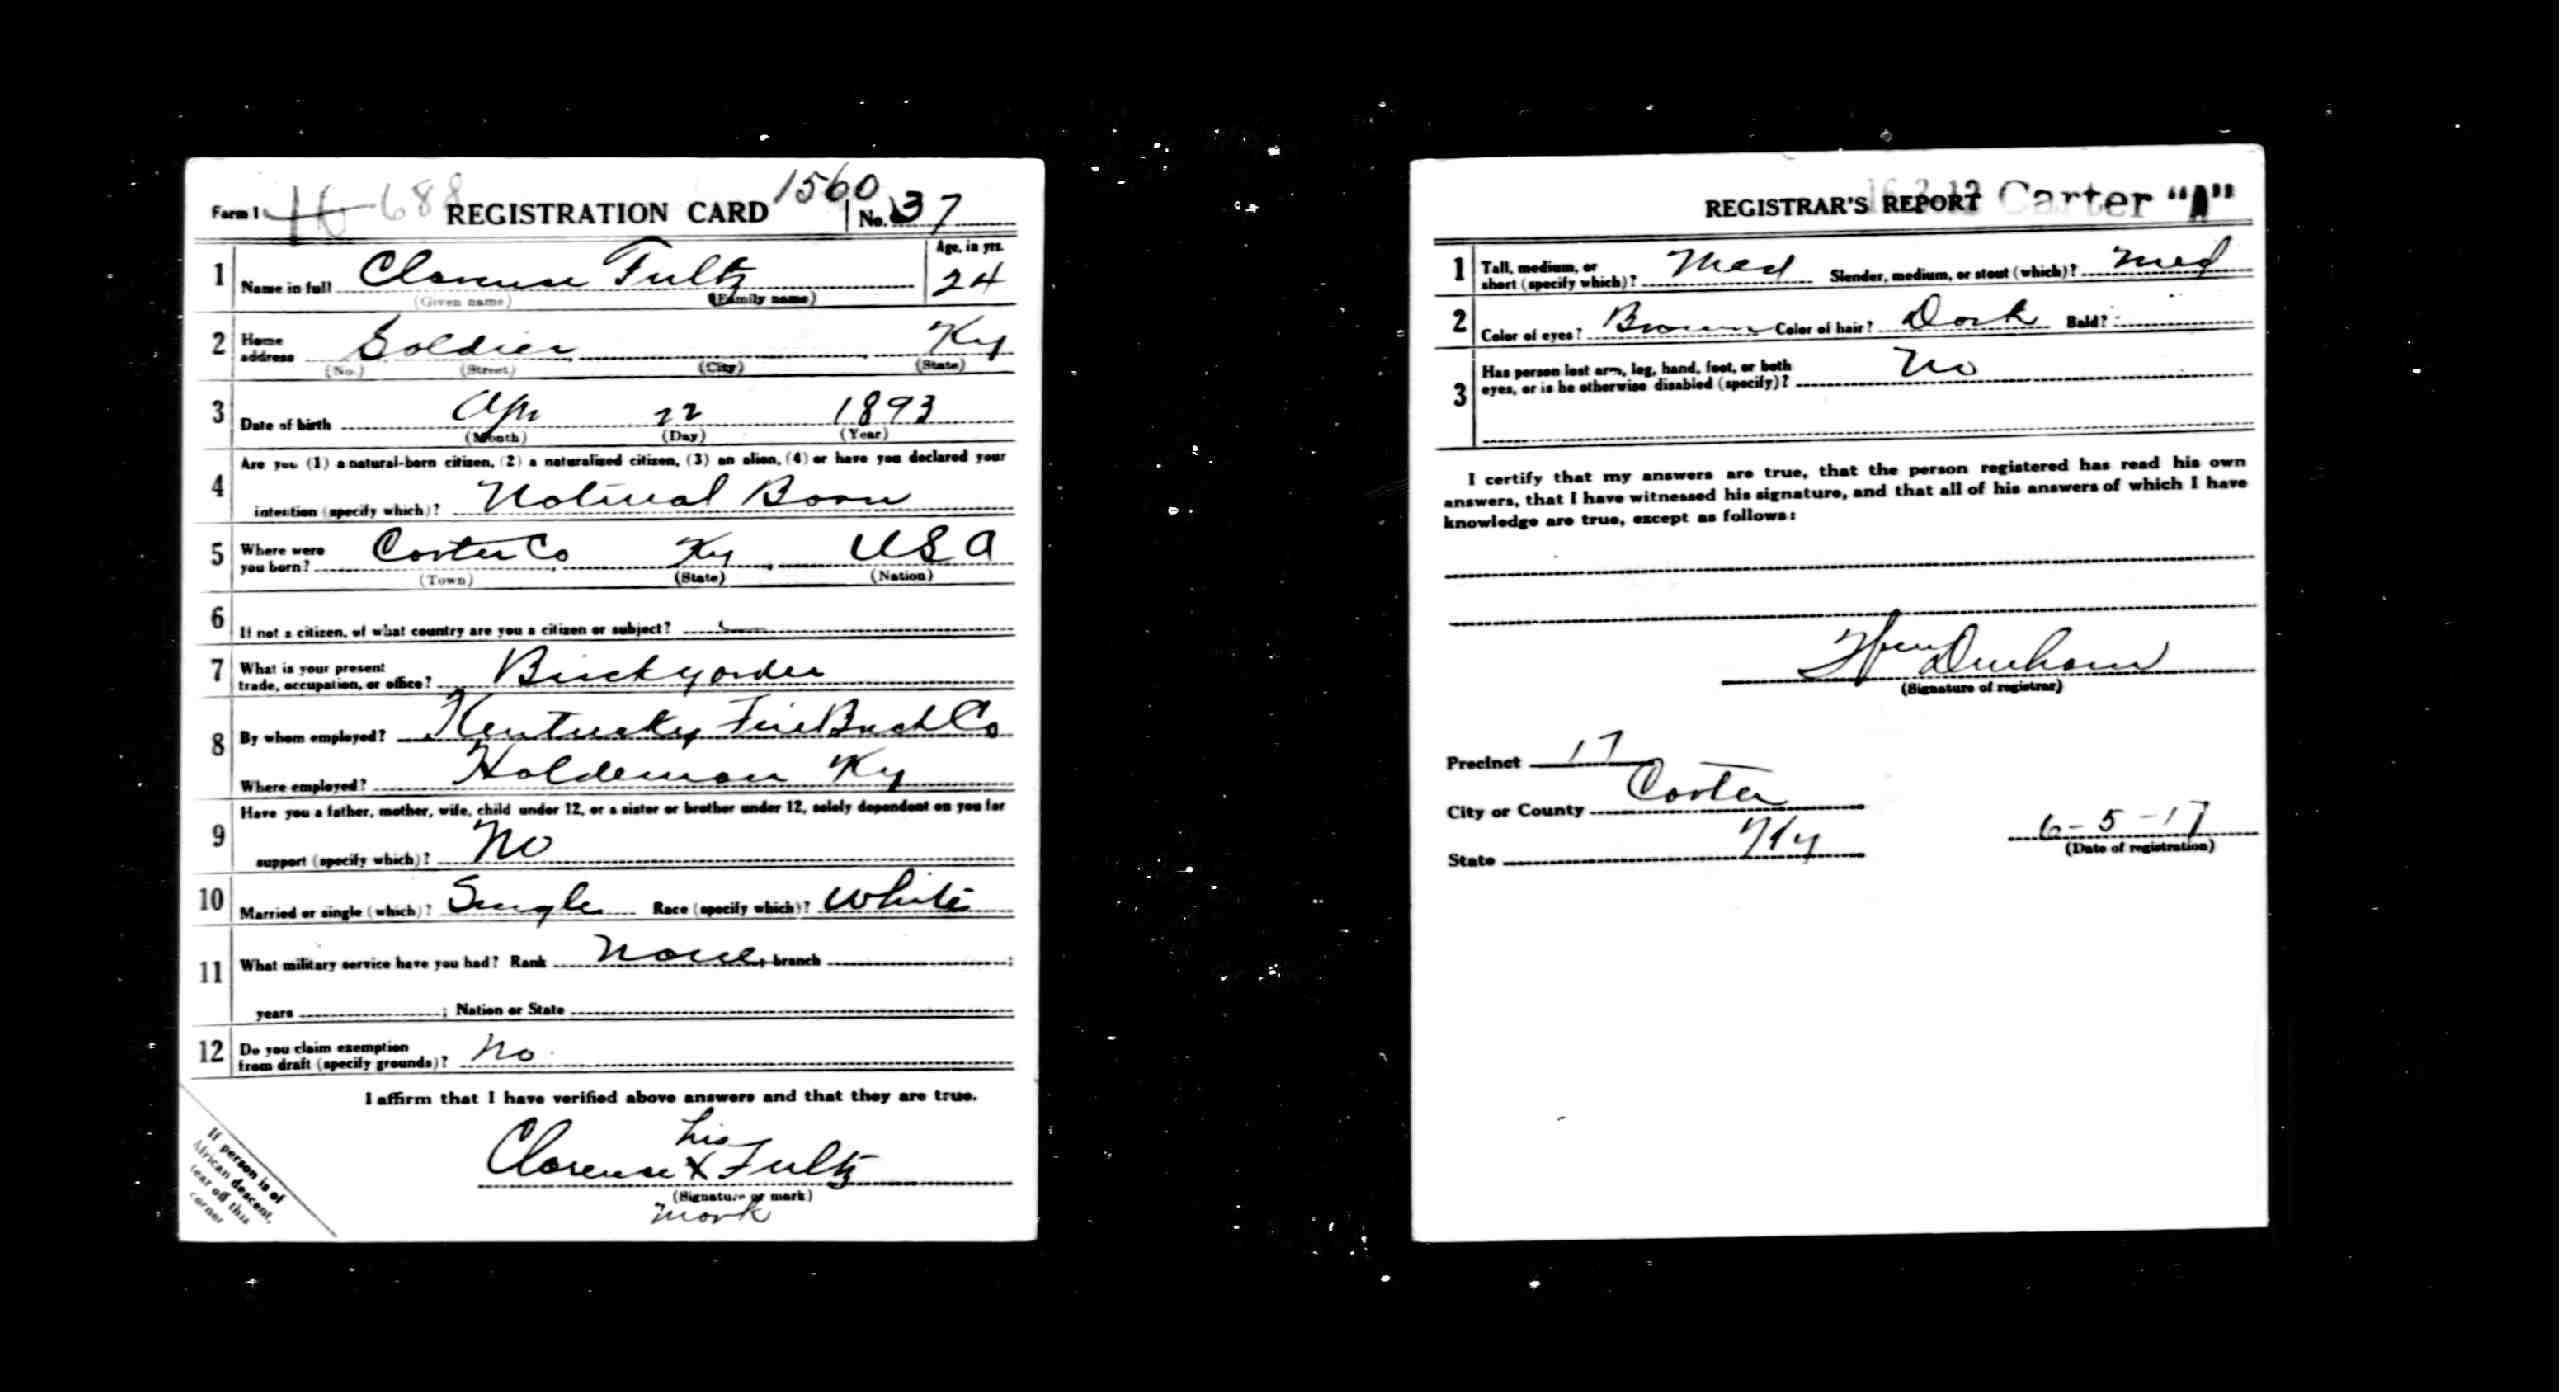 Form 1 16 688 REGISTRATION CARD 1560 No. 37
1 Name in full Clarence Fultz Age, in yrs. 24
(Given name) (Family name)
2 Home address Soldier Ky
(No.) (Street) (City) (State)
3 Date of birth Apr 22 1893
(Month) (Day) (Year)
4 Are you (1) a natural-born citizen, (2) a naturalized citizen, (3) an alien, (4) or have you declared your
intention (specify which)? Natural Born
5 Where were you born? Carter Co Ky USA
(Town) (State) (Nation)
6 If not a citizen, of what country are you a citizen or subject?
7 What is your present trade, occupation, or office? Brickyarder
8 By whom employed? Kentucky Fire Brick Co
Where employed? Haldeman Ky
9 Have you a father, mother, wife, child under 12, or a sister or brother under 12, solely dependent on you for
support (specify which)? No
10 Married or single (which)? Single Race (specify which)? White
11 What military service have you had? Rank None, branch ;
years ; Nation or State
12 Do you claim exemption from draft (specify grounds)? No
I affirm that I have verified above answers and that they are true.
his
Clarence X Fultz
(Signature or mark)
mark
If person is of
African descent,
tear off this
corner
REGISTRAR'S REPORT Carter "A"
1 Tall, medium, or short (specify which)? Med Slender, medium, or stout (which)? Med
2 Color of eyes? Brown Color of hair? Dark Bald?
3 Has person lost arm, leg, hand, foot, or both
eyes, or is he otherwise disabled (specify)? No
I certify that my answers are true, that the person registered has read his own
answers, that I have witnessed his signature, and that all of his answers of which I have
knowledge are true, except as follows:
Durham
(Signature of registrar)
Precinct 17
City or County Carter
State Ky 6-5-17
(Date of registration)